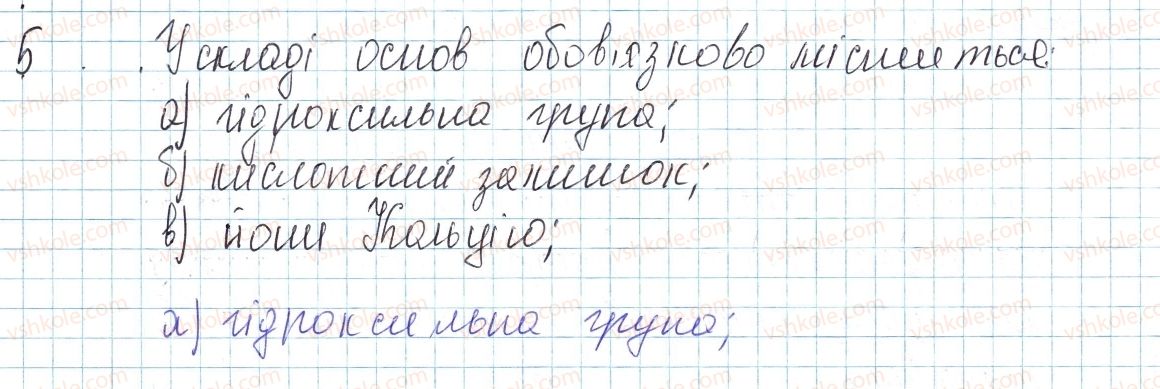 5 . . У складі основ обов'язково міститься:
а) гідроксильна група;
б) кислотний залишок;
в) йони Кальцію;
а) гідроксильна група;